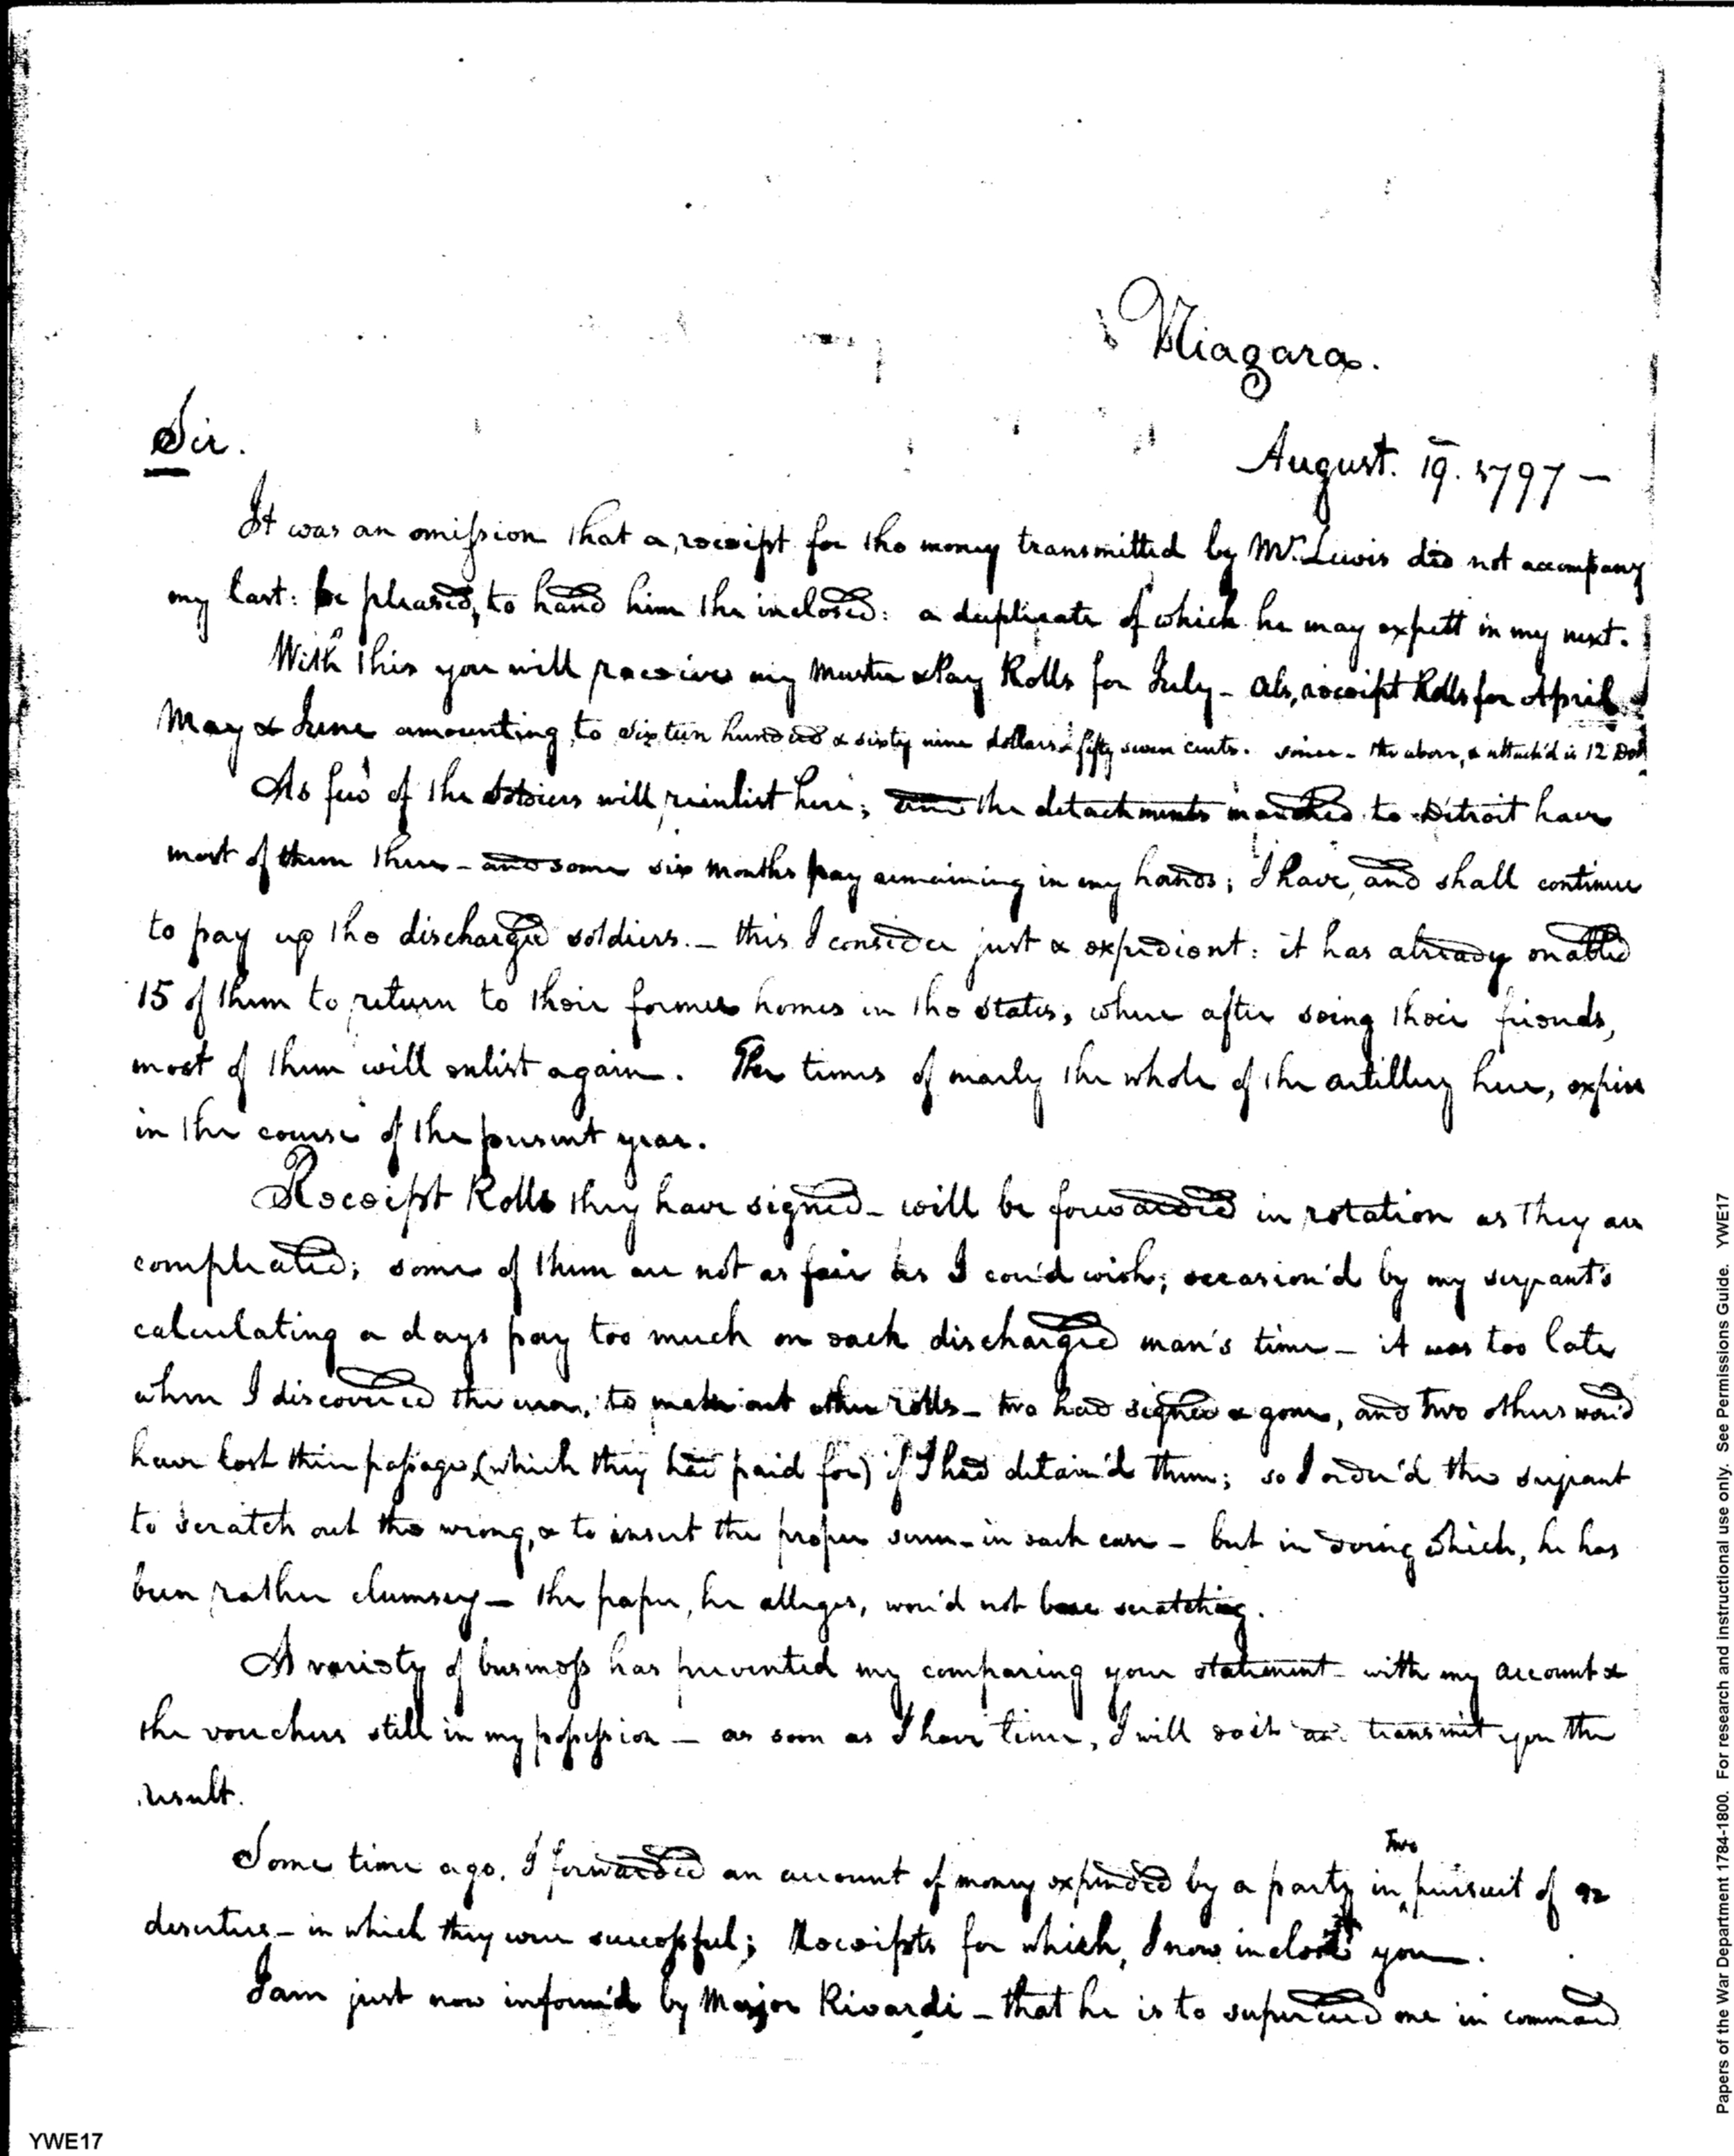 Niagara.
Sir.
August. 19. 1797 —
It was an omission that a receipt for the money transmitted by Mr. Lewis did not accompany
my last: be pleased, to hand him the inclosed: a duplicate of which he may expect in my next.
With this you will receive my Muster & Pay Rolls for July - also, receipt Rolls for April
May & June amounting to sixteen hundred & sixty nine dollars & fifty seven cents. since - the above, & attach'd is 12 Doll
As few of the soldiers will reinlist here; the detachments marched to Detroit have
most of them there - and some six months pay remaining in my hands; I have, and shall continue
to pay up the discharged soldiers. — this I consider just & expedient: it has already enabled
15 of them to return to their former homes in the states, where after seing their friends,
most of them will enlist again. The times of nearly the whole of the artillery here, expire
in the course of the present year.
Receipt Rolls they have signed - will be forwarded in rotation as they are
compleated; some of them are not as fair as I cou'd wish; occasion'd by my serjeant's
calculating a days pay too much on each discharged man's time - it was too late
when I discovered the error, to make out other rolls - two had signed & gone, and two others wou'd
have lost their passage, (which they had paid for) if I had detain'd them; so I order'd the serjeant
to scratch out the wrong, & to insert the proper sum - in each case - but in doing which, he has
been rather clumsey — the paper, he alleges, wou'd not bear scratching.
A variety of business has prevented my comparing your statement - with my account &
the vouchers still in my possession — as soon as I have time, I will do it & transmit you the
result.
Some time ago. I forwarded an account of money expended by a party in Two pursuit of
deserters - in which they were successful; Receipts for which, I now inclose you.
I am just now inform'd by Major Rivardi - that he is to superceed me in command
YWE17
Papers of the War Department 1784-1800. For research and instructional use only. See Permissions Guide. YWE17